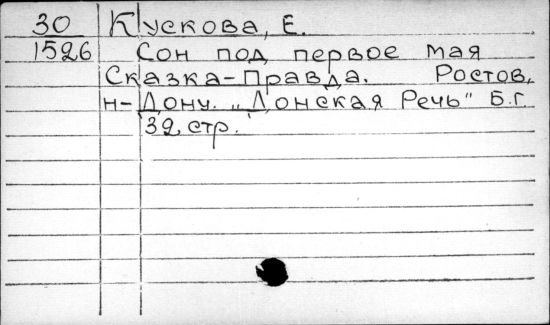 30 Кускова, Е.
1526 Сон под первое мая
Сказка-Правда. Ростов,
н-Дону. „Донская Речь" Б.г.
32, стр.